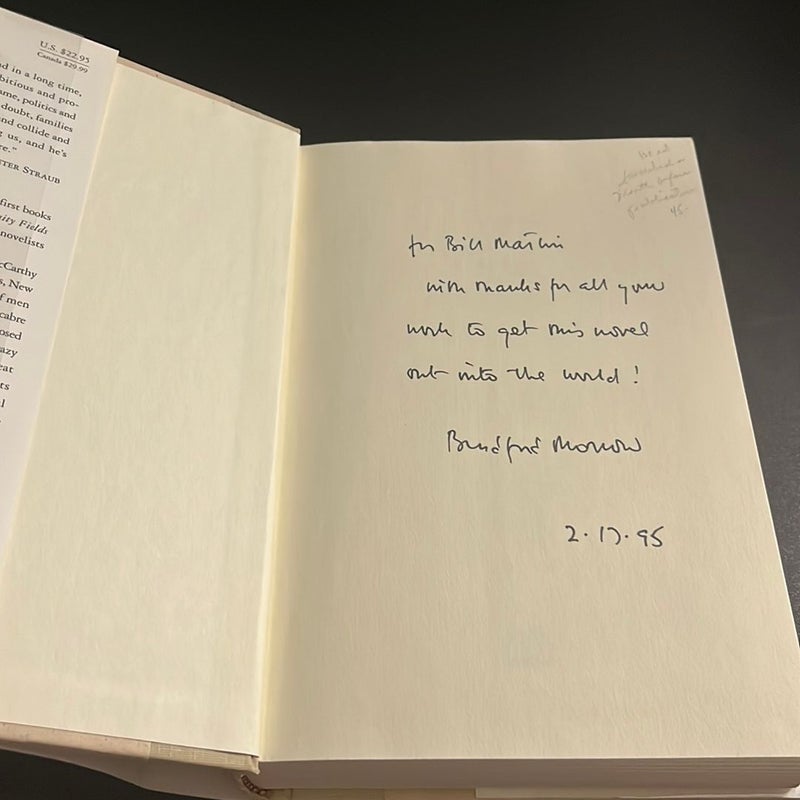 U.S. $22.95
Canada $29.99
d in a long time,
bitious and pro-
ame, politics and
doubt, families
nd collide and
g us, and he's
re."
TER STRAUB
first books
ity Fields
novelists
cCarthy
s, New
f men
cabre
osed
azy
eat
ts
l
for Bill Martin
with thanks for all your
work to get this novel
out into the world!
Bradford Morrow
2.17.95
month before
publication
45-